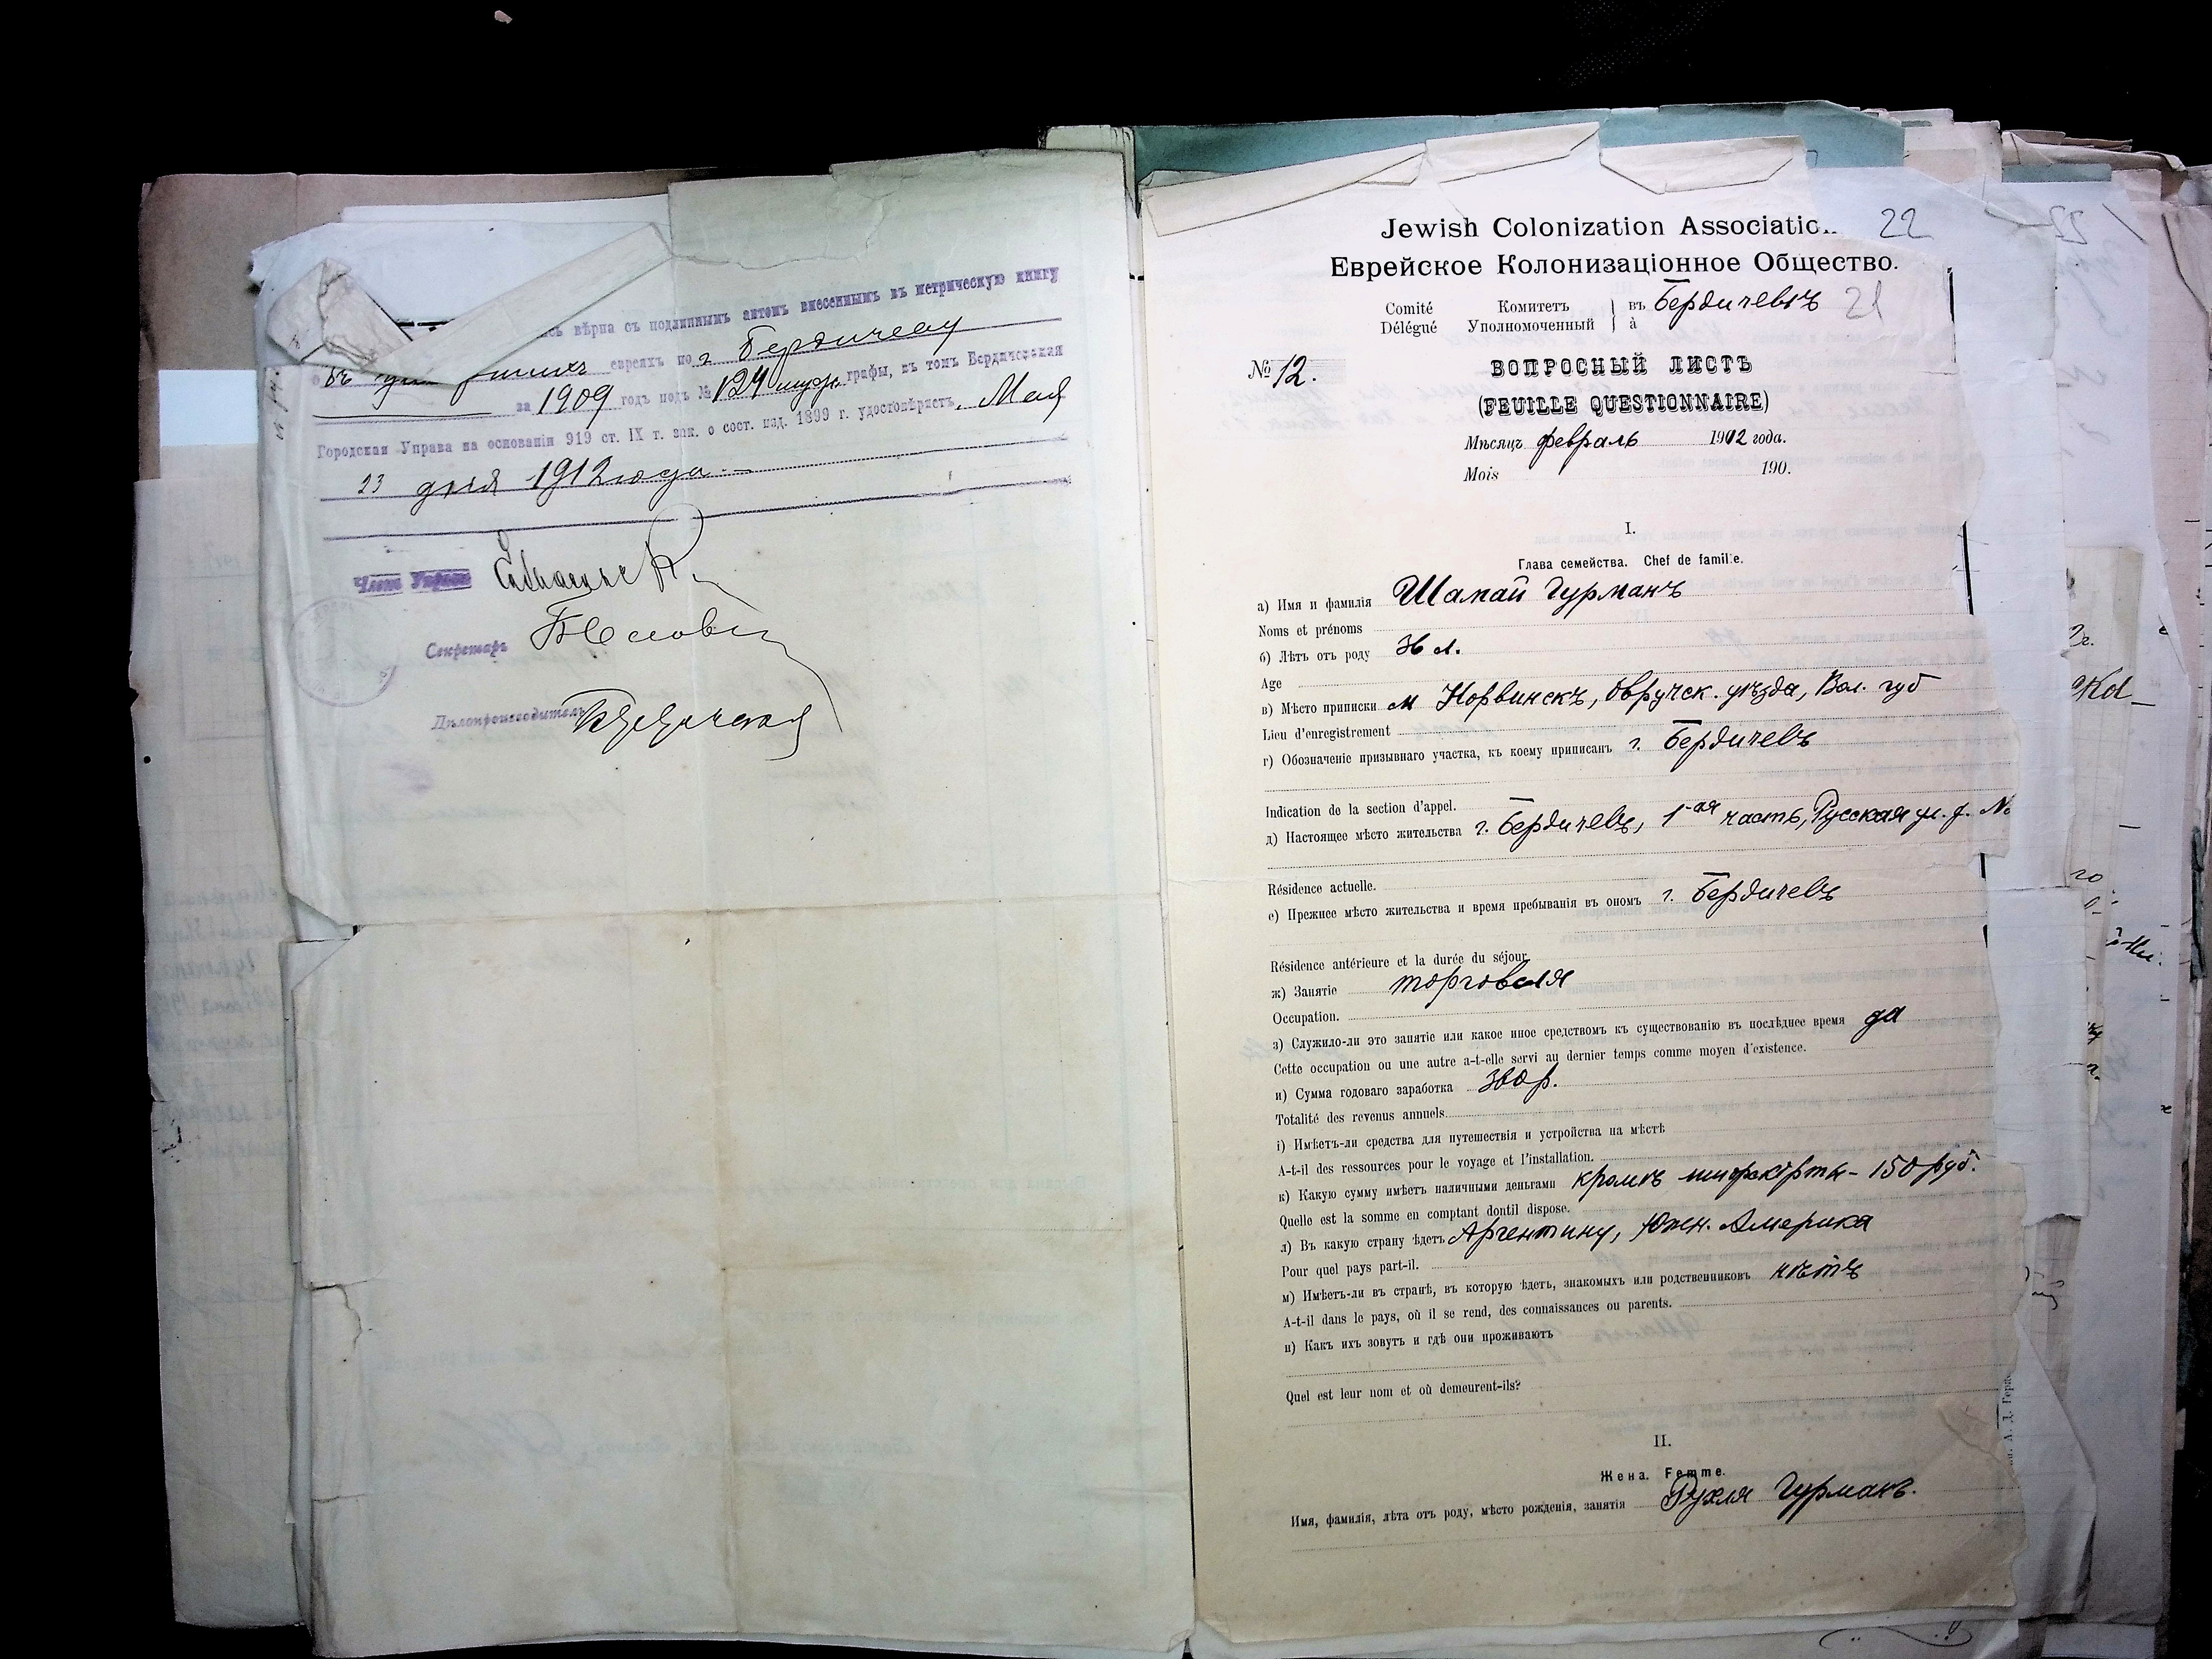 вѣрна съ подлиннымъ актомъ внесеннымъ въ метрическую книгу
евреяхъ по г. Бердичеву
за 1909 годъ подъ № 124 графы, въ томъ Бердичевская
Городская Управа на основаніи 919 ст. IX т. зак. о сост. изд. 1899 г. удостовѣряетъ. Мая
23 дня 1912 года
Членъ Управы
Секретарь
Дѣлопроизводитель
Jewish Colonization Associatio
22
Еврейское Колонизаціонное Общество.
Comité Комитетъ въ Бердичевѣ
21
Délégué Уполномоченный à
№ 12.
ВОПРОСНЫЙ ЛИСТЪ
(FEUILLE QUESTIONNAIRE)
Мѣсяцъ февраль 1912 года.
Mois 190.
I.
Глава семейства. Chef de famille.
а) Имя и фамилія Шамай Гурманъ
Noms et prénoms
б) Лѣтъ отъ роду 36 л.
Age
в) Мѣсто приписки м Норвинскъ, Овручск. уѣзда, Вол. губ
Lieu d'enregistrement
г) Обозначеніе призывнаго участка, къ коему приписанъ г. Бердичевъ
Indication de la section d'appel.
д) Настоящее мѣсто жительства г. Бердичевъ, 1-ая часть, Русская ул. д. №
Résidence actuelle.
е) Прежнее мѣсто жительства и время пребыванія въ ономъ г. Бердичевъ
Résidence antérieure et la durée du séjour.
ж) Занятіе торговля
Occupation.
з) Служило-ли это занятіе или какое иное средствомъ къ существованію въ послѣднее время да
Cette occupation ou une autre a-t-elle servi au dernier temps comme moyen d'existence.
и) Сумма годоваго заработка 360 р.
Totalité des revenus annuels
і) Имѣетъ-ли средства для путешествія и устройства на мѣстѣ
A-t-il des ressources pour le voyage et l'installation.
к) Какую сумму имѣетъ наличными деньгами кромѣ шифскарты - 150 руб.
Quelle est la somme en comptant dontil dispose.
л) Въ какую страну ѣдетъ Аргентину, Южн. Америка
Pour quel pays part-il.
м) Имѣетъ-ли въ странѣ, въ которую ѣдетъ, знакомыхъ или родственниковъ нѣтъ
A-t-il dans le pays, où il se rend, des connaissances ou parents.
н) Какъ ихъ зовутъ и гдѣ они проживаютъ
Quel est leur nom et où demeurent-ils?
II.
Жена. Femme.
Имя, фамилія, лѣта отъ роду, мѣсто рожденія, занятія Рухля Гурманъ.